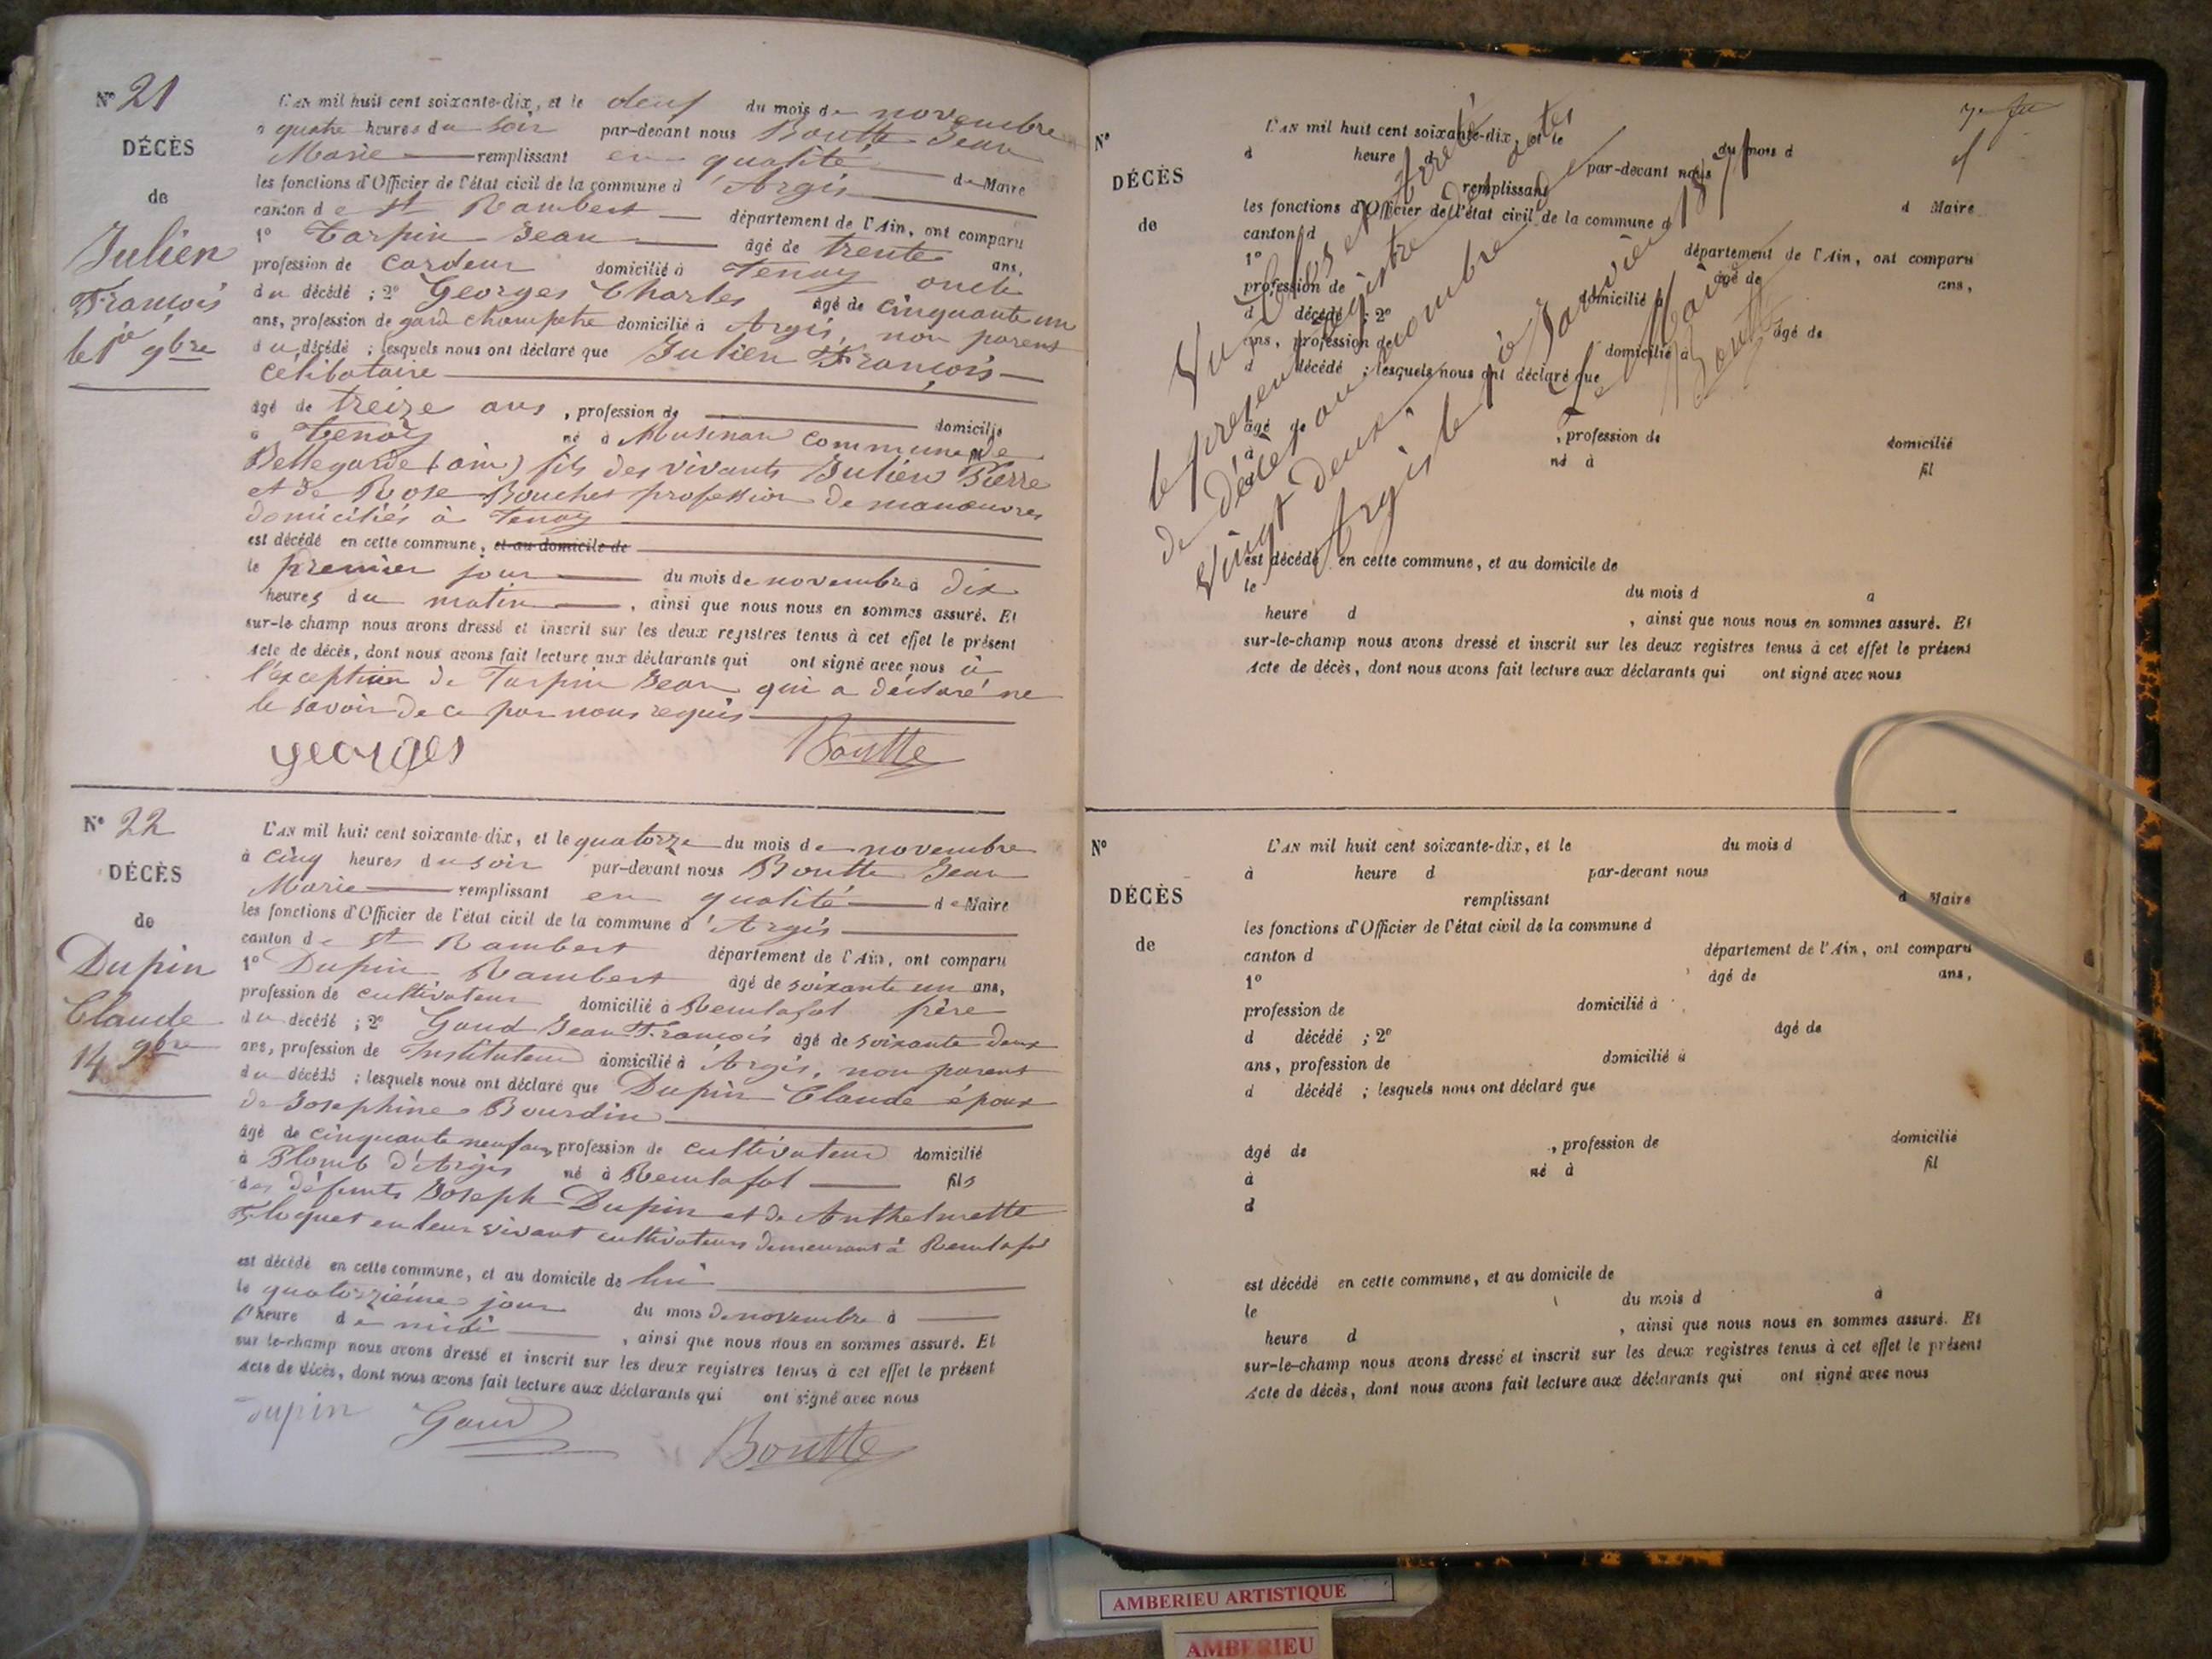 N° 21
DÉCÈS
de
Julien
François
le 1er 9bre
L'AN mil huit cent soixante-dix, et le deux du mois de novembre
à quatre heures du soir par-devant nous Boutte Jean
Marie remplissant en qualité de Maire
les fonctions d'Officier de l'état civil de la commune d'Argis
canton de St Rambert département de l'Ain, ont comparu
1° Tarpin Jean âgé de trente ans,
profession de cardeur domicilié à Tenay oncle
du décédé ; 2° Georges Charles âgé de cinquante un
ans, profession de garde champetre domicilié à Argis, non parent
du décédé ; lesquels nous ont déclaré que Julien François
celibataire
âgé de treize ans, profession de domicilié
à Tenay né à Musinan commune de
Bellegarde (ain) fils des vivants Julien Pierre
et de Rose Bouchet profession de manœuvres
domiciliés à Tenay
est décédé en cette commune, et au domicile de
le premier jour du mois de novembre à dix
heures du matin, ainsi que nous nous en sommes assuré. Et
sur-le-champ nous avons dressé et inscrit sur les deux registres tenus à cet effet le présent
Acte de décès, dont nous avons fait lecture aux déclarants qui ont signé avec nous à
l'exception de Tarpin Jean qui a déclaré ne
le savoir de ce par nous requis
georges Boutte
N° 22
DÉCÈS
de
Dupin
Claude
14 9bre
L'AN mil huit cent soixante-dix, et le quatorze du mois de novembre
à cinq heures du soir par-devant nous Boutte Jean
Marie remplissant en qualité de Maire
les fonctions d'Officier de l'état civil de la commune d'Argis
canton de St Rambert département de l'Ain, ont comparu
1° Dupin Rambert âgé de soixante un ans,
profession de cultivateur domicilié à Reculafol frère
du décédé ; 2° Gaud Jean François âgé de soixante deux
ans, profession de Instituteur domicilié à Argis, non parent
du décédé ; lesquels nous ont déclaré que Dupin Claude époux
de Josephine Bourdin
âgé de cinquante neuf ans, profession de cultivateur domicilié
à Plomb d'Argis né à Reculafol fils
des défunts Joseph Dupin et de Anthelmette
en leur vivant cultivateurs demeurant à Reculafol
est décédé en cette commune, et au domicile de lui
le quatorzième jour du mois de novembre à
l'heure de midi, ainsi que nous nous en sommes assuré. Et
sur-le-champ nous avons dressé et inscrit sur les deux registres tenus à cet effet le présent
Acte de décès, dont nous avons fait lecture aux déclarants qui ont signé avec nous
Dupin Gaud Boutte
N°
DÉCÈS
de
L'AN mil huit cent soixante-dix, et le du mois d
à heure d par-devant nous
remplissant d Maire
les fonctions d'Officier de l'état civil de la commune d
canton d département de l'Ain, ont comparu
1° âgé de ans,
profession de domicilié à
d décédé ; 2° âgé de
ans, profession de domicilié à
d décédé ; lesquels nous ont déclaré que
âgé de , profession de domicilié
à né à fil
d
est décédé en cette commune, et au domicile de
le du mois d à
heure d , ainsi que nous nous en sommes assuré. Et
sur-le-champ nous avons dressé et inscrit sur les deux registres tenus à cet effet le présent
Acte de décès, dont nous avons fait lecture aux déclarants qui ont signé avec nous
Vu, Clos et Arrêté
le present registre des actes
de décès au nombre de
Vingt deux.
Argis le 1er Janvier 1871
Le Maire
Boutte
N°
DÉCÈS
de
L'AN mil huit cent soixante-dix, et le du mois d
à heure d par-devant nous
remplissant d Maire
les fonctions d'Officier de l'état civil de la commune d
canton d département de l'Ain, ont comparu
1° âgé de ans,
profession de domicilié à
d décédé ; 2° âgé de
ans, profession de domicilié à
d décédé ; lesquels nous ont déclaré que
âgé de , profession de domicilié
à né à fil
d
est décédé en cette commune, et au domicile de
le du mois d à
heure d , ainsi que nous nous en sommes assuré. Et
sur-le-champ nous avons dressé et inscrit sur les deux registres tenus à cet effet le présent
Acte de décès, dont nous avons fait lecture aux déclarants qui ont signé avec nous
AMBERIEU ARTISTIQUE
AMBERIEU